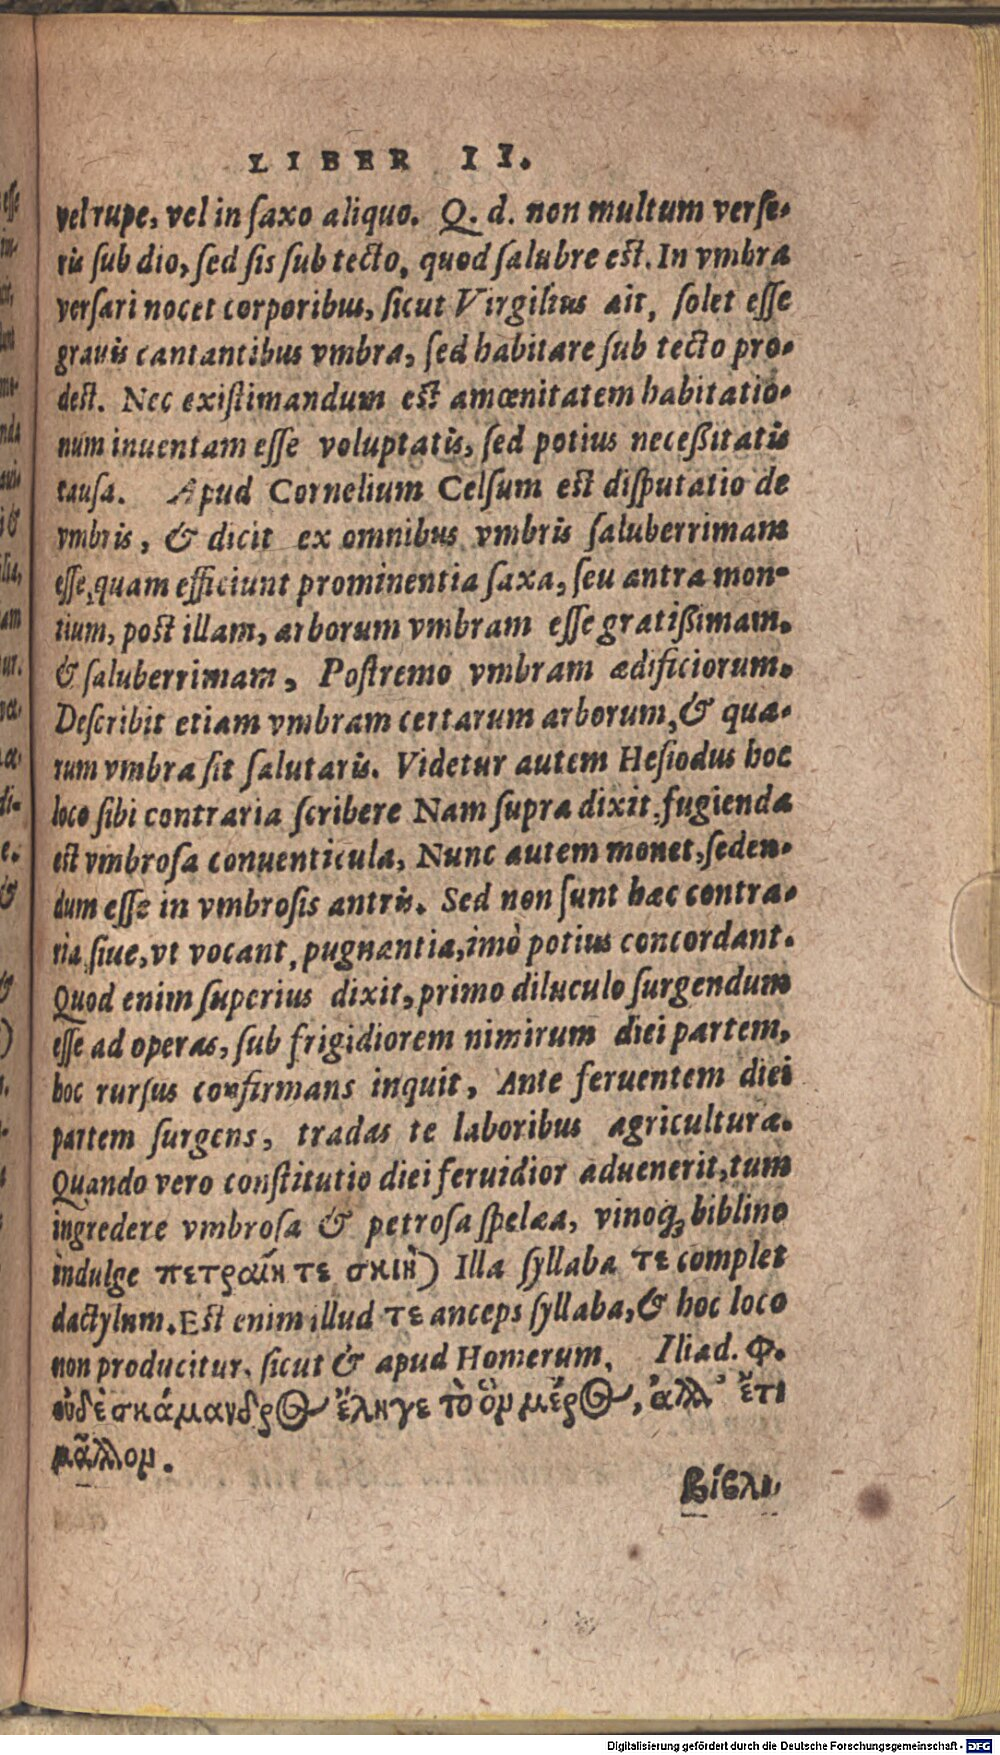 LIBER II.
vel rupe, vel in saxo aliquo. Q. d. non multum verse-
ris sub dio, sed sis sub tecto, quod salubre est. In vmbra
versari nocet corporibus, sicut Virgilius ait, solet esse
grauis cantantibus vmbra, sed habitare sub tecto pro-
dest. Nec existimandum est amœnitatem habitatio-
num inuentam esse voluptatis, sed potius necessitatis
causa. Apud Cornelium Celsum est disputatio de
vmbris, & dicit ex omnibus vmbris saluberrimam
esse, quam efficiunt prominentia saxa, seu antra mon-
tium, post illam, arborum vmbram esse gratissimam.
& saluberrimam, Postremo vmbram ædificiorum.
Describit etiam vmbram certarum arborum, & qua-
rum vmbra sit salutaris. Videtur autem Hesiodus hoc
loco sibi contraria scribere Nam supra dixit, fugienda
est vmbrosa conuenticula, Nunc autem monet, seden-
dum esse in vmbrosis antris. Sed non sunt hæc contra-
ria siue, vt vocant, pugnantia, imò potius concordant.
Quod enim superius dixit, primo diluculo surgendum
esse ad operas, sub frigidiorem nimirum diei partem,
hoc rursus confirmans inquit, Ante feruentem diei
partem surgens, tradas te laboribus agriculturæ.
Quando vero constitutio diei feruidior aduenerit, tum
ingredere vmbrosa & petrosa spelæa, vinoq; biblino
indulge πετραίη τε σκιὴ) Illa syllaba τε complet
dactylum. Est enim illud τε anceps syllaba, & hoc loco
non producitur, sicut & apud Homerum, Iliad. Φ.
οὐδὲ σκάμανδρος ἔληγε τὸ ὃν μένος, ἀλλ' ἔτι
μᾶλλον.
βίβλι
Digitalisierung gefördert durch die Deutsche Forschungsgemeinschaft - DFG